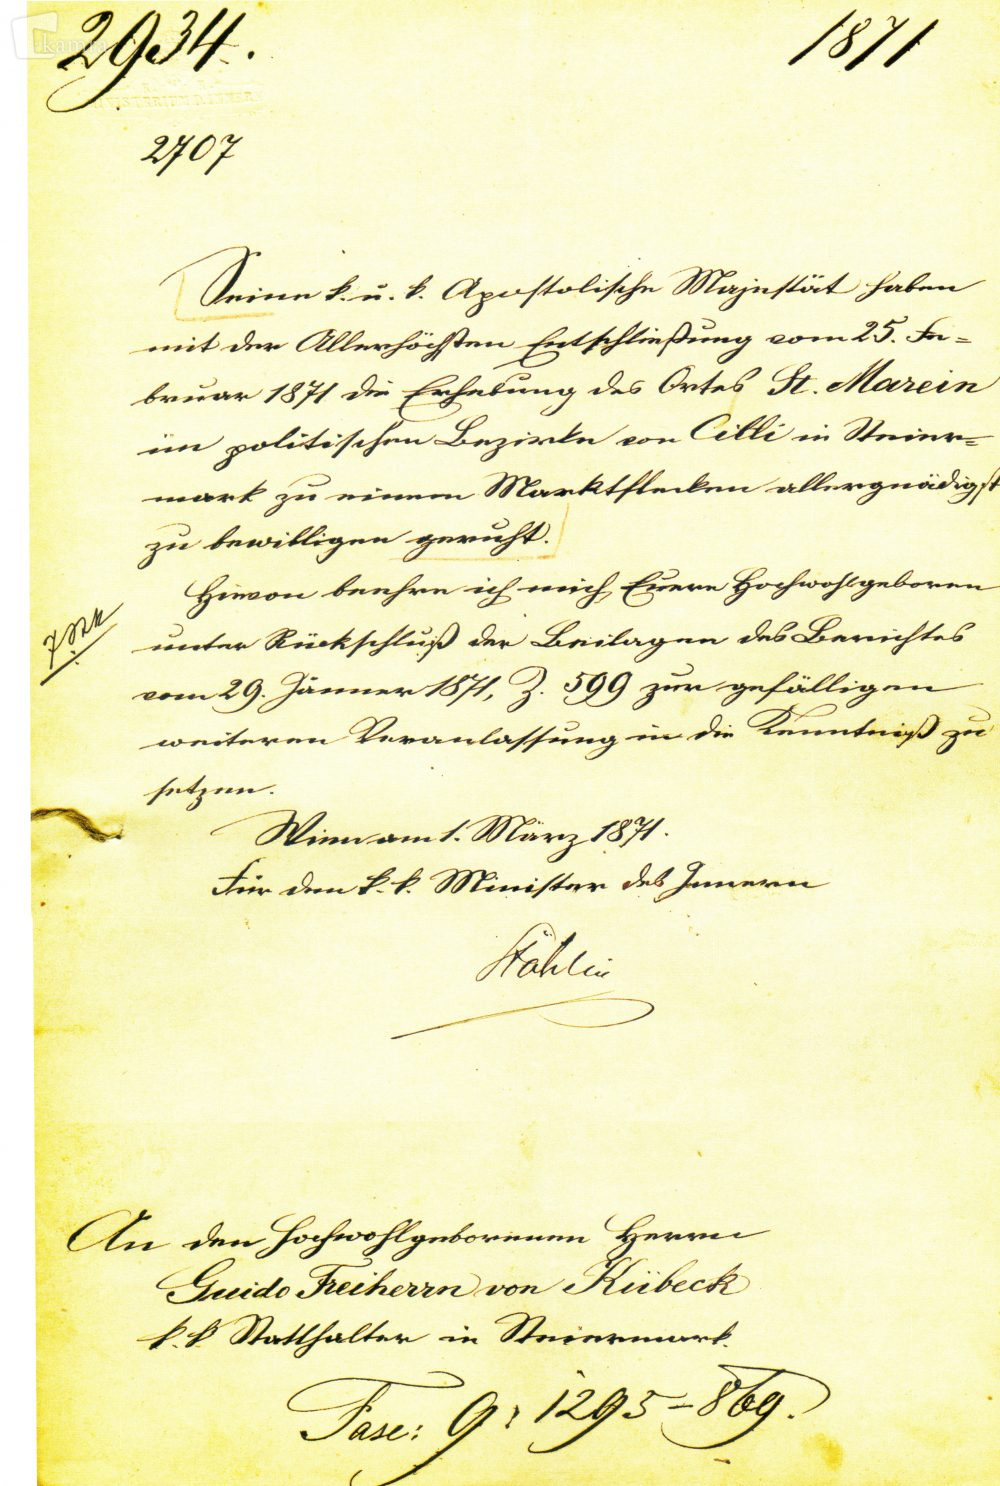 2934.
1871
2707
Seine k. u. k. Apostolische Majestät haben
mit der Allerhöchsten Entschließung vom 25. Fe=
bruar 1871 die Erhebung des Ortes St. Marein
im politischen Bezirke von Cilli in Steier=
mark zu einem Marktflecken allergnädigst
zu bewilligen geruht.
Hievon beehre ich mich, Euere Hochwohlgeboren
unter Rückschluß der Beilagen des Berichtes
vom 29. Jänner 1871, Z. 599 zur gefälligen
weiteren Veranlassung in die Kenntniß zu
setzen.
Wien am 1. März 1871.
Für den k. k. Minister des Innern
Stählin
An den hochwohlgeborenen Herrn
Guido Freiherrn von Kübeck
k. k. Statthalter in Steiermark.
Fasc: 9: 1295-869.